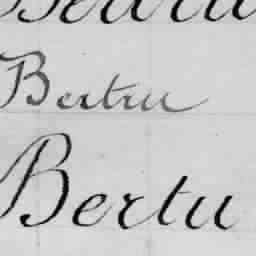 Bertru
Bertu